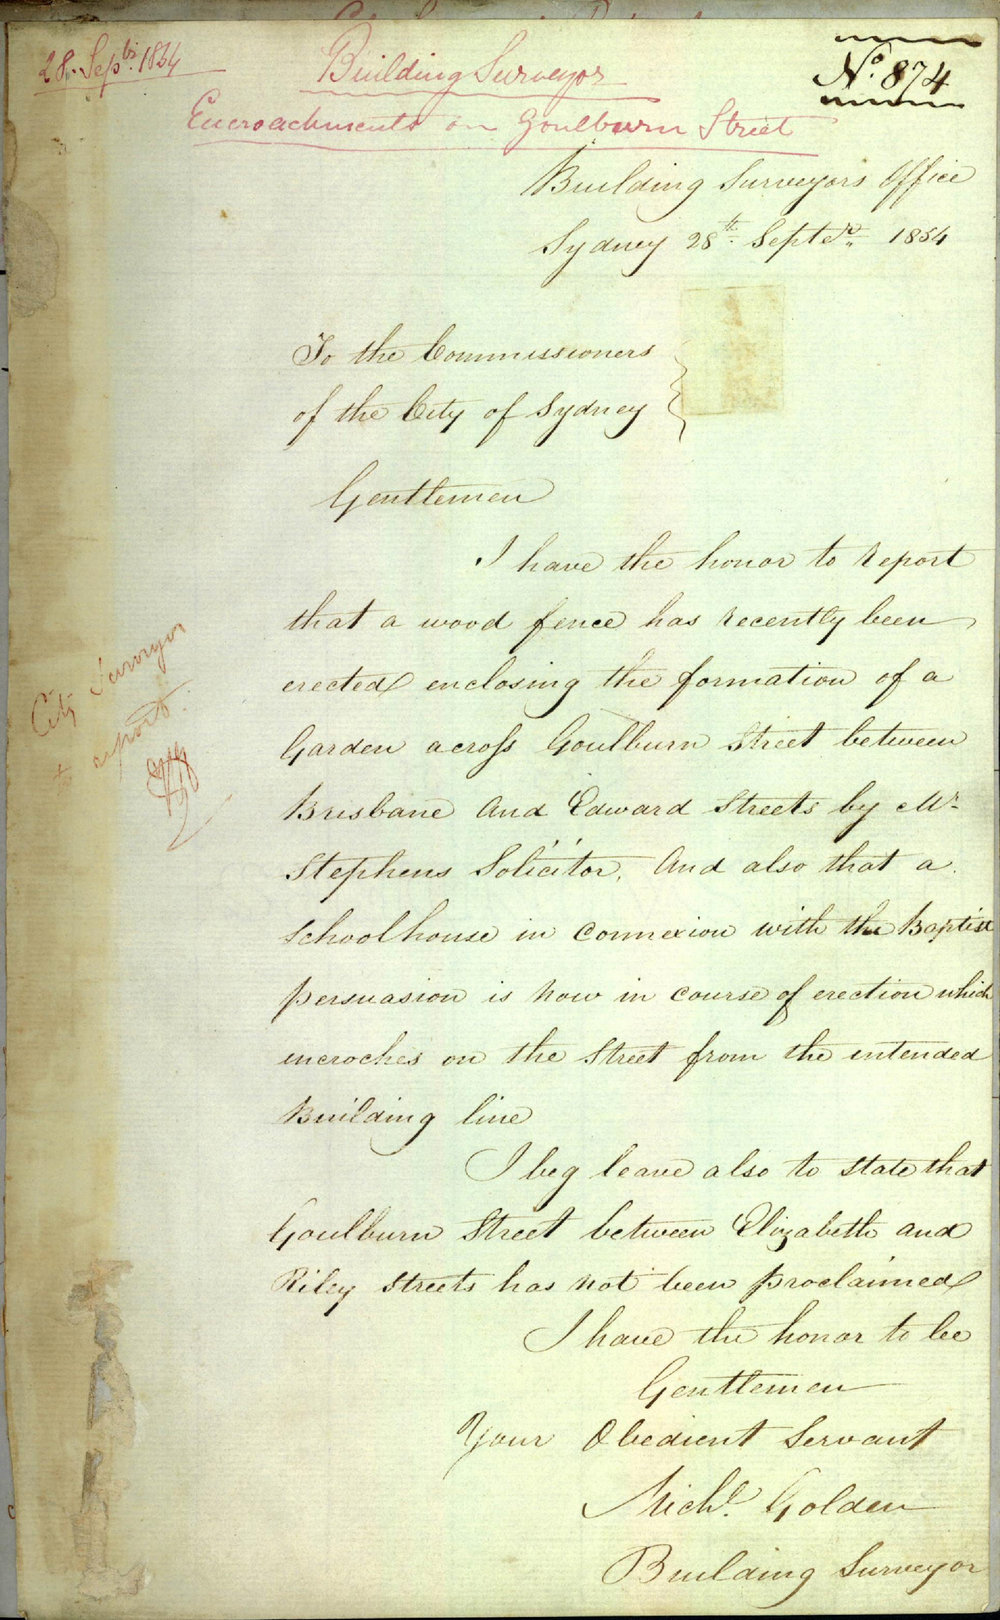 28. Septbr. 1854
Building Surveyor
No. 874
Encroachments on Goulburn Street
Building Surveyors Office
Sydney 28th. Septer. 1854
To the Commissioners
of the City of Sydney
Gentlemen
I have the honor to report
that a wood fence has recently been
erected enclosing the formation of a
Garden across Goulburn Street between
Brisbane And Edward Streets by Mr.
Stephens Solicitor. And also that a
Schoolhouse in Connexion with the Baptist
persuasion is now in course of erection which
incroches on the Street from the intended
Building line
I beg leave also to state that
Goulburn Street between Elizabeth and
Riley Streets has not been proclaimed
I have the honor to be
Gentlemen
Your Obedient Servant
Michl. Golden
Building Surveyor
City Surveyor
to report.